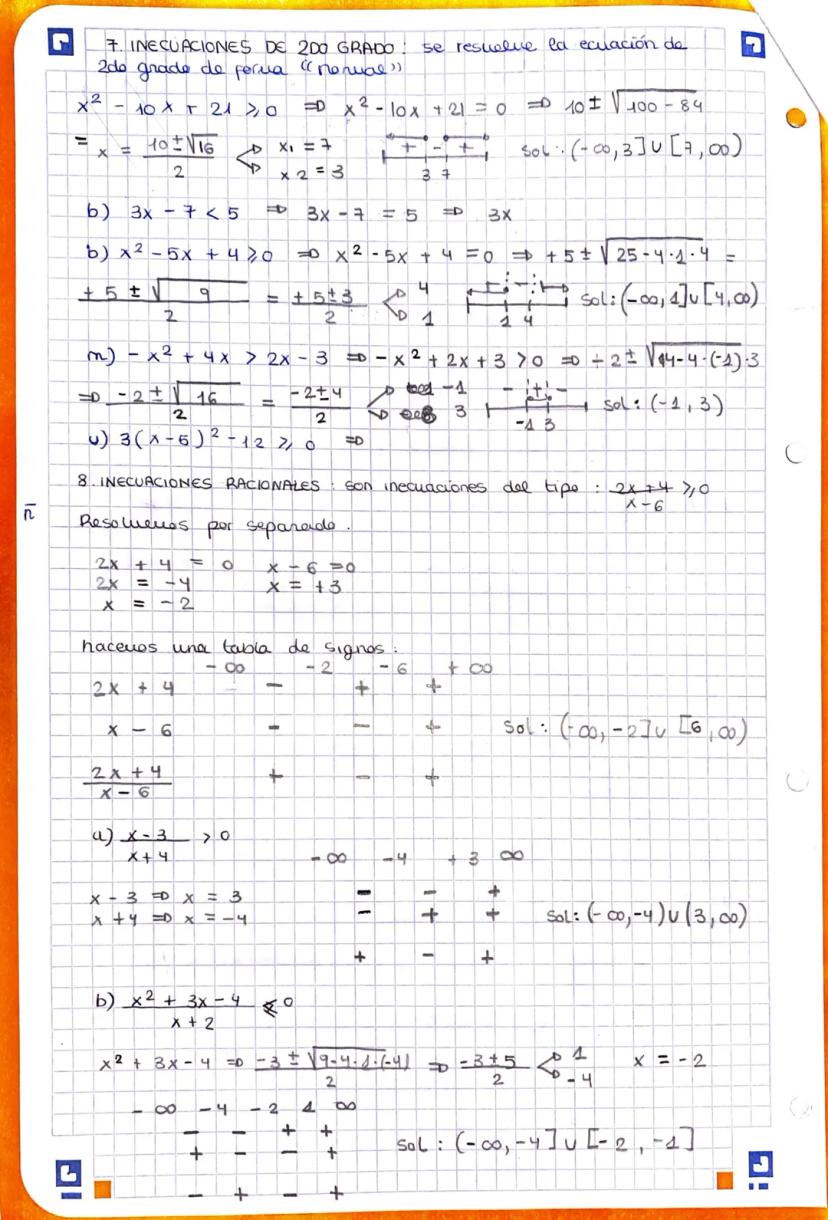 7. INECUACIONES DE 2DO GRADO: se resuelve la ecuación de
2do grado de forma "normal"
x² - 10x + 21 ≥ 0 ⇒ x² - 10x + 21 = 0 ⇒ 10 ± √100 - 84
= x = (10 ± √16)/2 x1 = 7 x2 = 3 + - + 3 7 Sol: (-∞, 3] ∪ [7, ∞)
b) 3x - 7 < 5 ⇒ 3x - 7 = 5 ⇒ 3x
b) x² - 5x + 4 ≥ 0 ⇒ x² - 5x + 4 = 0 ⇒ +5 ± √25 - 4·1·4 =
(+5 ± √9)/2 = (+5 ± 3)/2 4 1 + - + 1 4 Sol: (-∞, 1] ∪ [4, ∞)
m) -x² + 4x > 2x - 3 ⇒ -x² + 2x + 3 > 0 ⇒ -2 ± √4 - 4·(-1)·3
⇒ (-2 ± √16)/2 = (-2 ± 4)/2 -1 3 - + - -1 3 sol: (-1, 3)
u) 3(x-5)² - 12 ≥ 0 ⇒
8. INECUACIONES RACIONALES: son inecuaciones del tipo: (2x + 4)/(x - 6) ≥ 0
n
Resolvemos por separado.
2x + 4 = 0 x - 6 = 0
2x = -4 x = +3
x = -2
hacemos una tabla de signos:
-∞ -2 -6 +∞
2x + 4 - + +
x - 6 - - + Sol: (-∞, -2] ∪ [6, ∞)
(2x + 4)/(x - 6) + - +
a) (x - 3)/(x + 4) > 0
-∞ -4 +3 ∞
x - 3 ⇒ x = 3 - - +
x + 4 ⇒ x = -4 - + + Sol: (-∞, -4) ∪ (3, ∞)
+ - +
b) (x² + 3x - 4)/(x + 2) ≤ 0
x² + 3x - 4 ⇒ (-3 ± √9 - 4·1·(-4))/2 ⇒ (-3 ± 5)/2 1 -4 x = -2
-∞ -4 -2 1 ∞
- - + +
+ - - +
- + - +
Sol: (-∞, -4] ∪ [-2, -1]